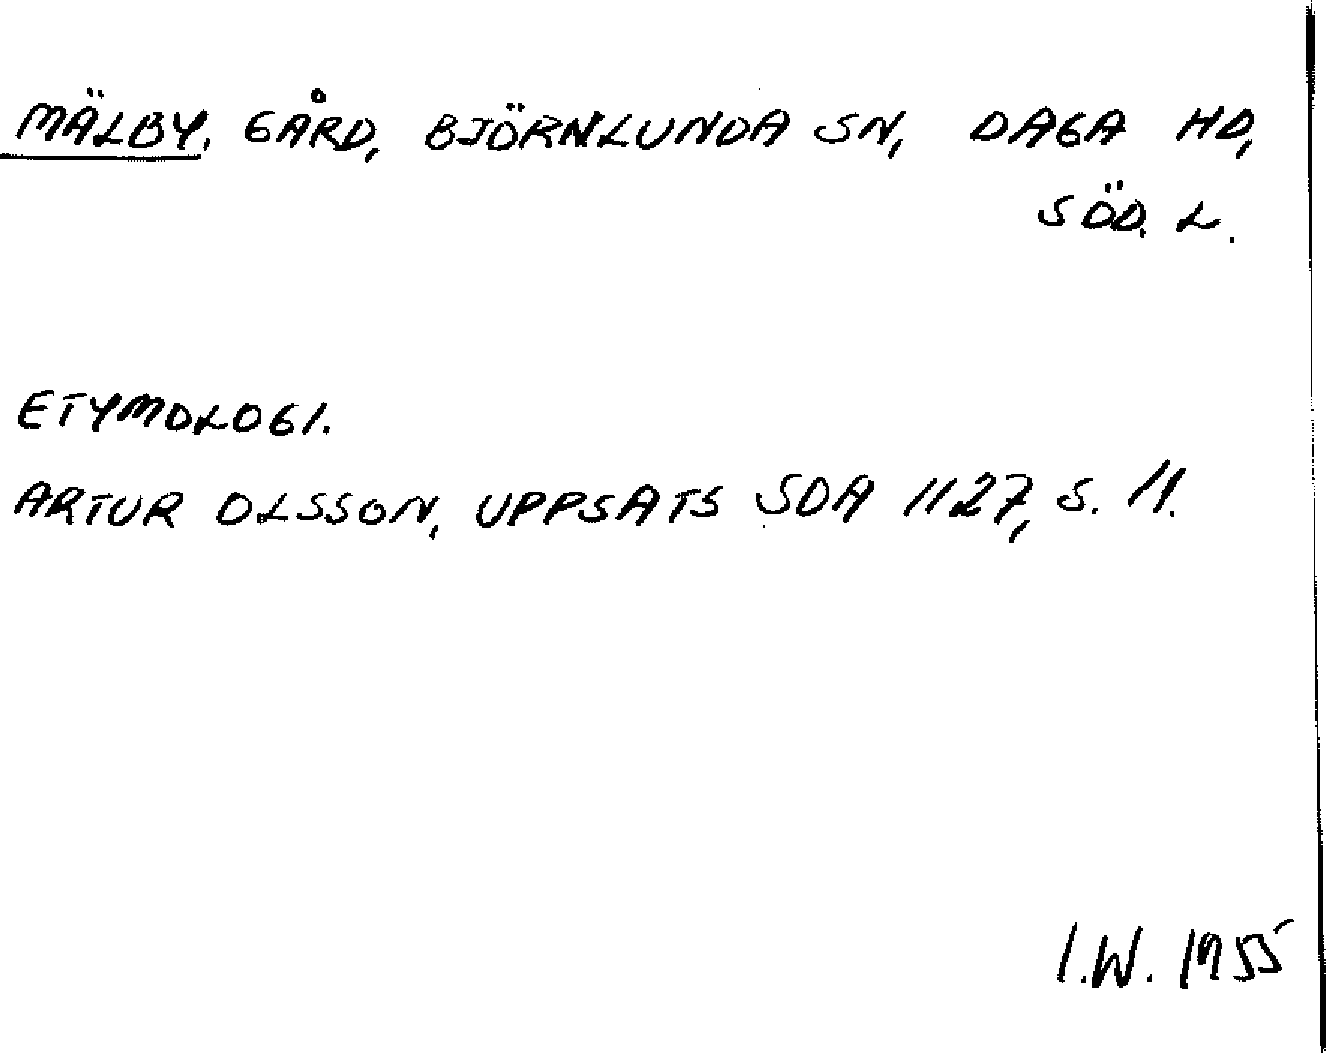 MÄLBY. GÅRD, BJÖRNLUNDA SN, DAGA HD,
SÖD. L.
ETYMOLOGI.
ARTUR OLSSON, UPPSATS SOA 1127, S. 11.
I.W. 1955